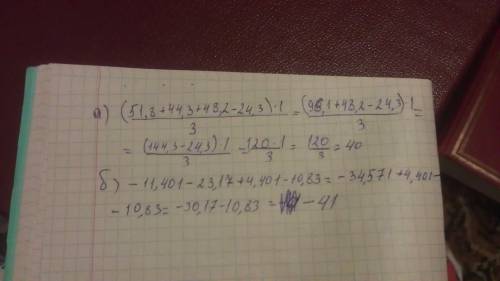 а) (51,8+44,3+48,2-24,3)·1/3 = (96,1+48,2-24,3)·1/3 =
= (144,3-24,3)·1/3 = 120·1/3 = 120/3 = 40
б) -11,401-23,17+4,401-10,83=-34,571+4,401-
-10,83=-30,17-10,83 = -41